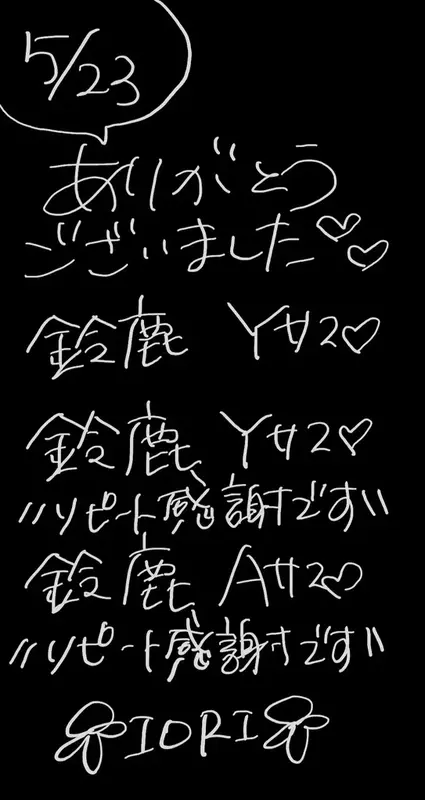 5/23
ありがとう
ございました♡♡
鈴鹿 Yサン♡
鈴鹿 Yサン♡
〃リピート感謝です〃
鈴鹿 Aサン♡
〃リピート感謝です〃
IORI